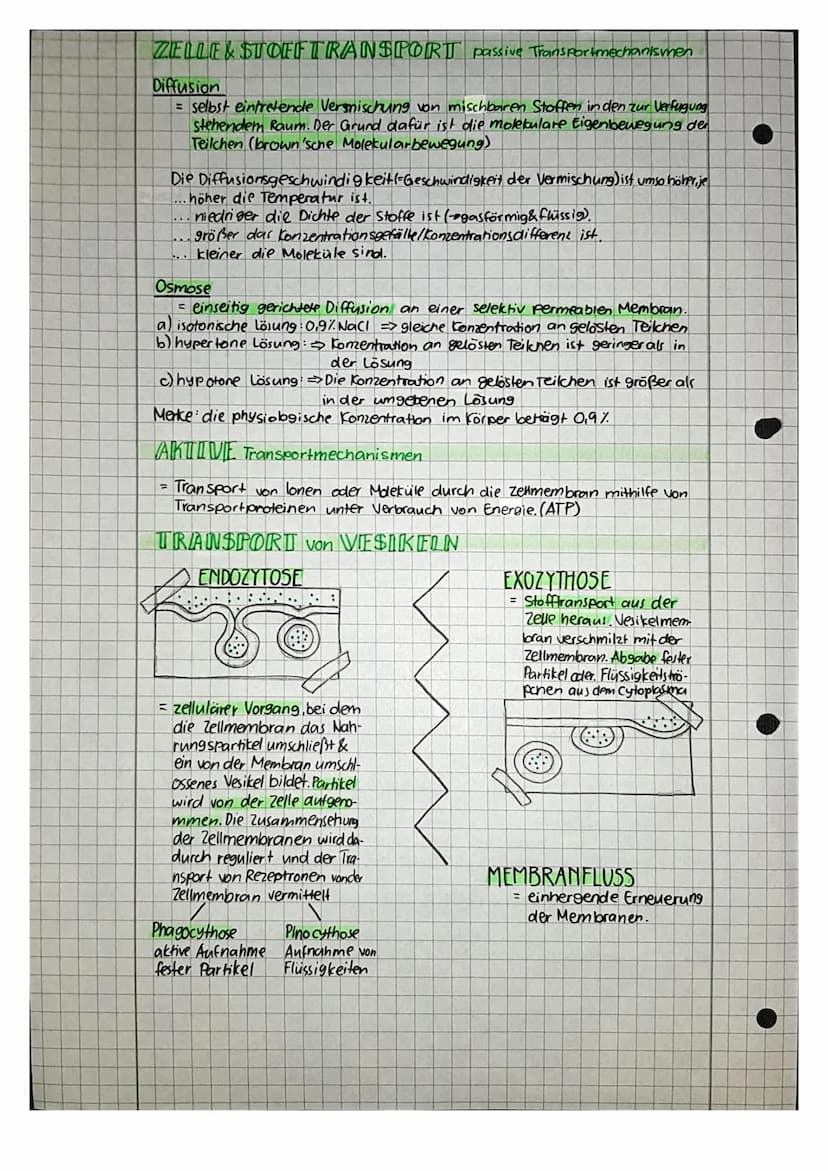 ZELLE & STOFFTRANSPORT passive Transportmechanismen
Diffusion
= selbst eintretende Vermischung von mischbaren Stoffen in den zur Verfügung
stehendem Raum. Der Grund dafür ist die molekulare Eigenbewegung der
Teilchen (brown'sche Molekularbewegung)
Die Diffusionsgeschwindigkeit (=Geschwindigkeit der Vermischung) ist umso höher, je
... höher die Temperatur ist.
... niedriger die Dichte der Stoffe ist (→gasförmig & flüssig).
... größer das Konzentrationsgefälle/Konzentrationsdifferenz ist.
... kleiner die Moleküle sind.
Osmose
= einseitig gerichtete Diffusion an einer selektiv permeablen Membran.
a) isotonische Lösung: 0,9% NaCl => gleiche Konzentration an gelösten Teilchen
b) hypertone Lösung: => Konzentration an gelösten Teilchen ist geringer als in
der Lösung
c) hypotone Lösung: => Die Konzentration an gelösten Teilchen ist größer als
in der umgebenen Lösung
Merke: die physiologische Konzentration im Körper beträgt 0,9%.
AKTIVE Transportmechanismen
= Transport von Ionen oder Moleküle durch die Zellmembran mithilfe von
Transportproteinen unter Verbrauch von Energie. (ATP)
TRANSPORT von VESIKELN
ENDOZYTOSE
= zellulärer Vorgang, bei dem
die Zellmembran das Nah-
rungspartikel umschließt &
ein von der Membran umschl-
ossenes Vesikel bildet. Partikel
wird von der Zelle aufgeno-
mmen. Die Zusammensetzung
der Zellmembranen wird da-
durch reguliert und der Tra-
nsport von Rezeptronen von der
Zellmembran vermittelt
Phagocythose
aktive Aufnahme
fester Partikel
Pinocythose
Aufnahme von
Flüssigkeiten
EXOZYTHOSE
= Stofftransport aus der
Zelle heraus. Vesikelmem-
bran verschmilzt mit der
Zellmembran. Abgabe fester
Partikel oder Flüssigkeitströ-
pchen aus dem Cytoplasma
MEMBRANFLUSS
= einhergende Erneuerung
der Membranen.